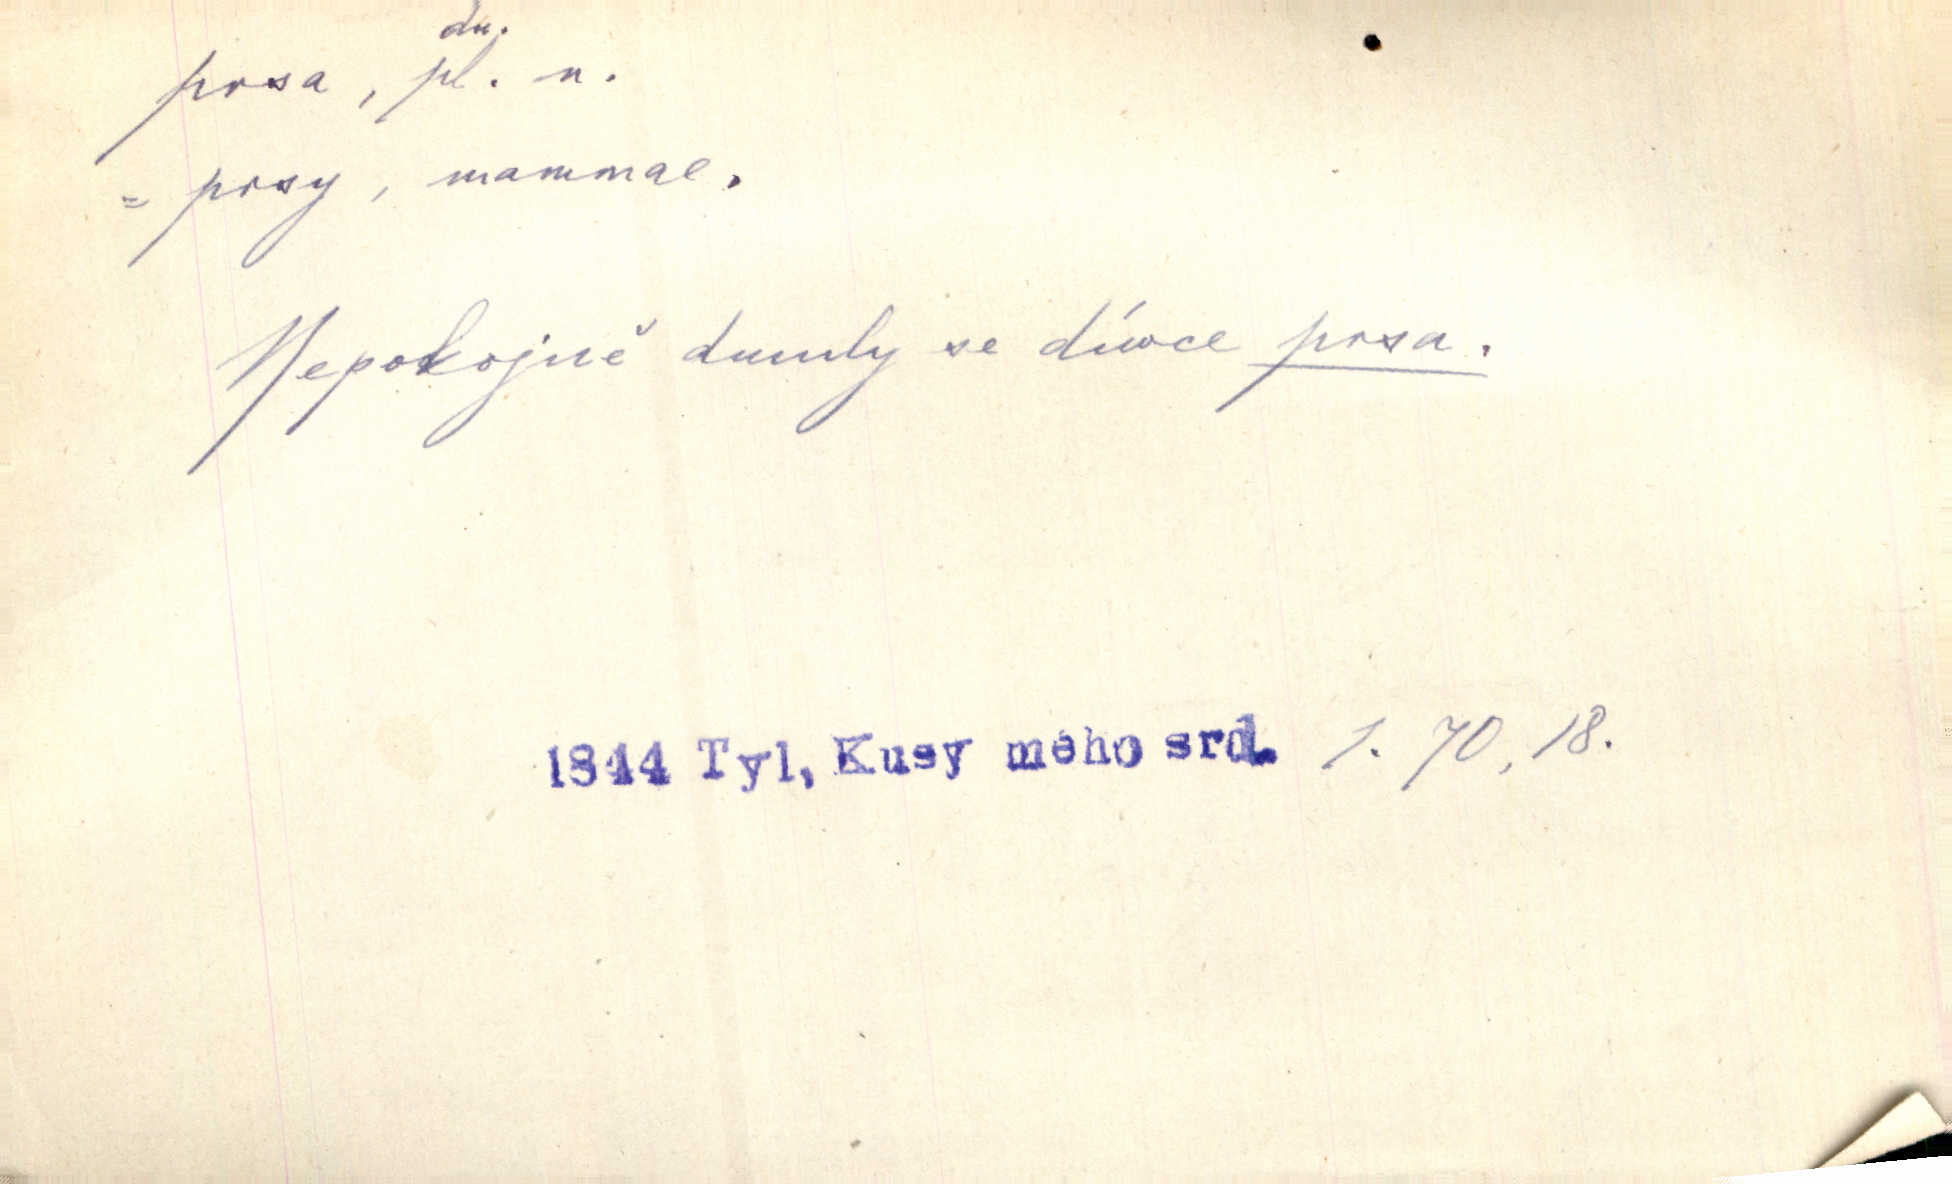 du.
prsa, pl. n.
= prsy, mammae.
Nepokojně dmuly se dívce prsa.
1844 Tyl, Kusy mého srd. 1. 70, 18.